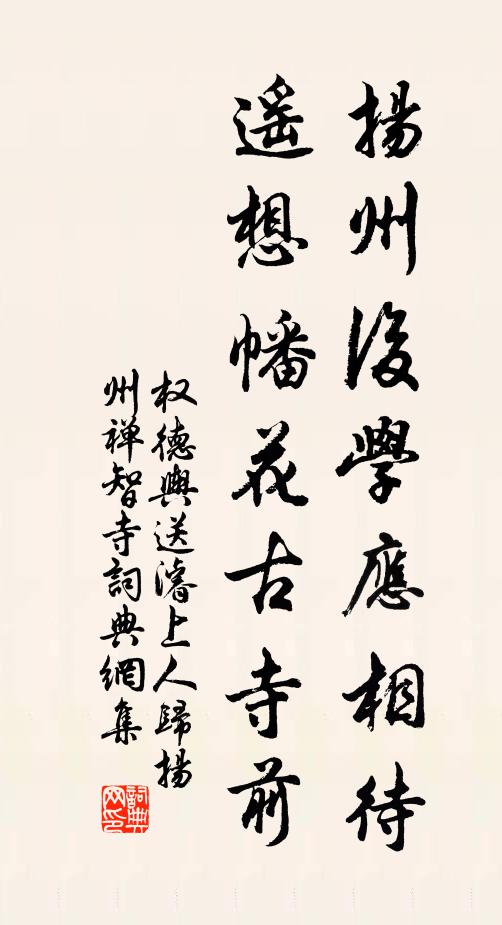 揚州後學應相待
遥想幡花古寺前
权德輿送濬上人歸揚
州禅智寺詞典網集
詞典
网印